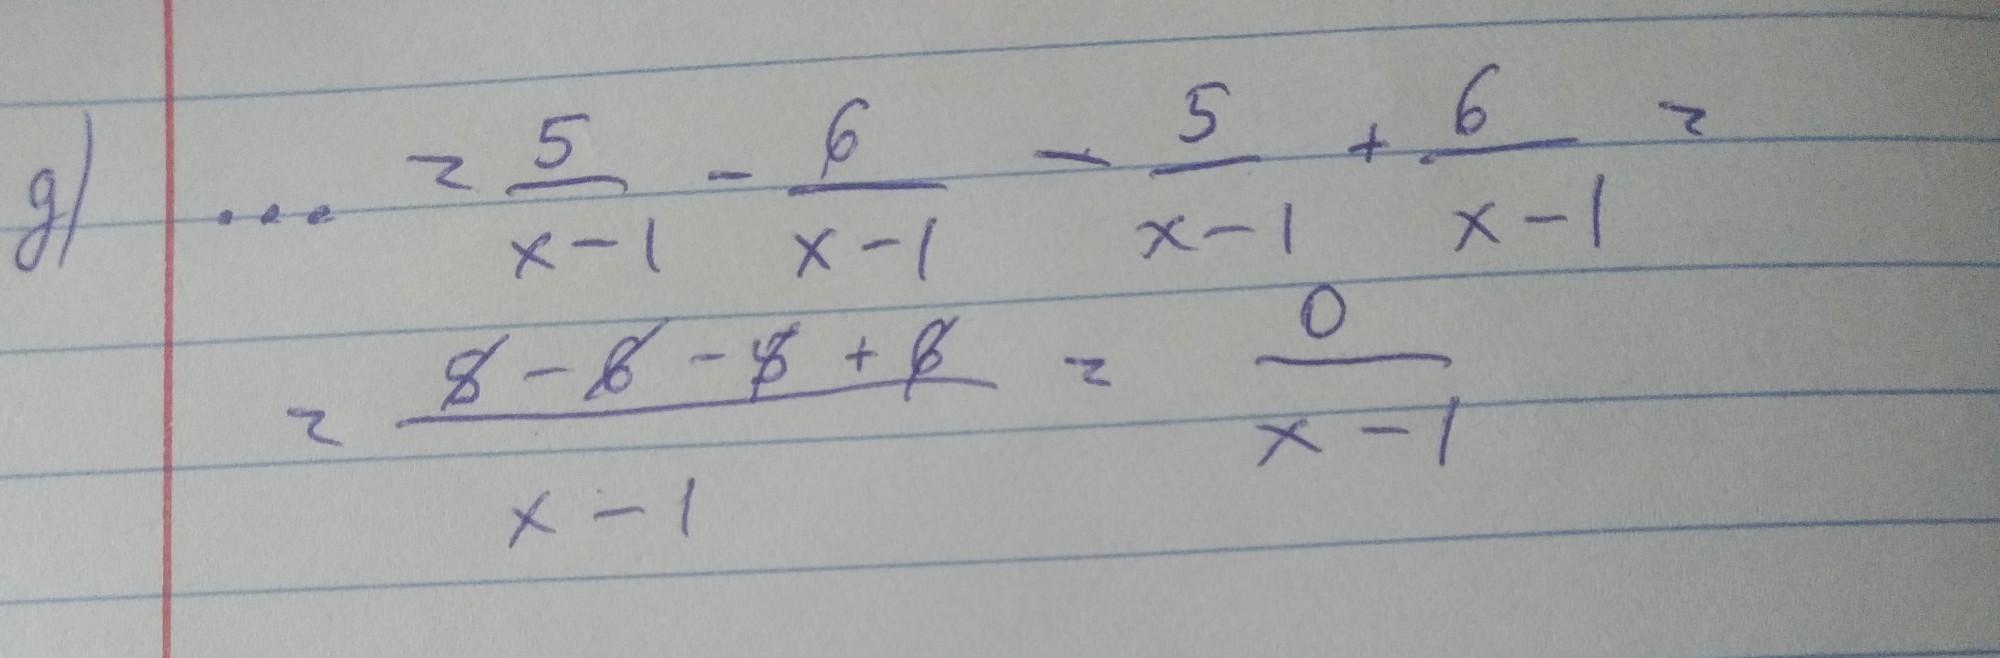 g) ... = 5/(x-1) - 6/(x-1) - 5/(x-1) + 6/(x-1) =
= (5 - 6 - 5 + 6)/(x-1) = 0/(x-1)